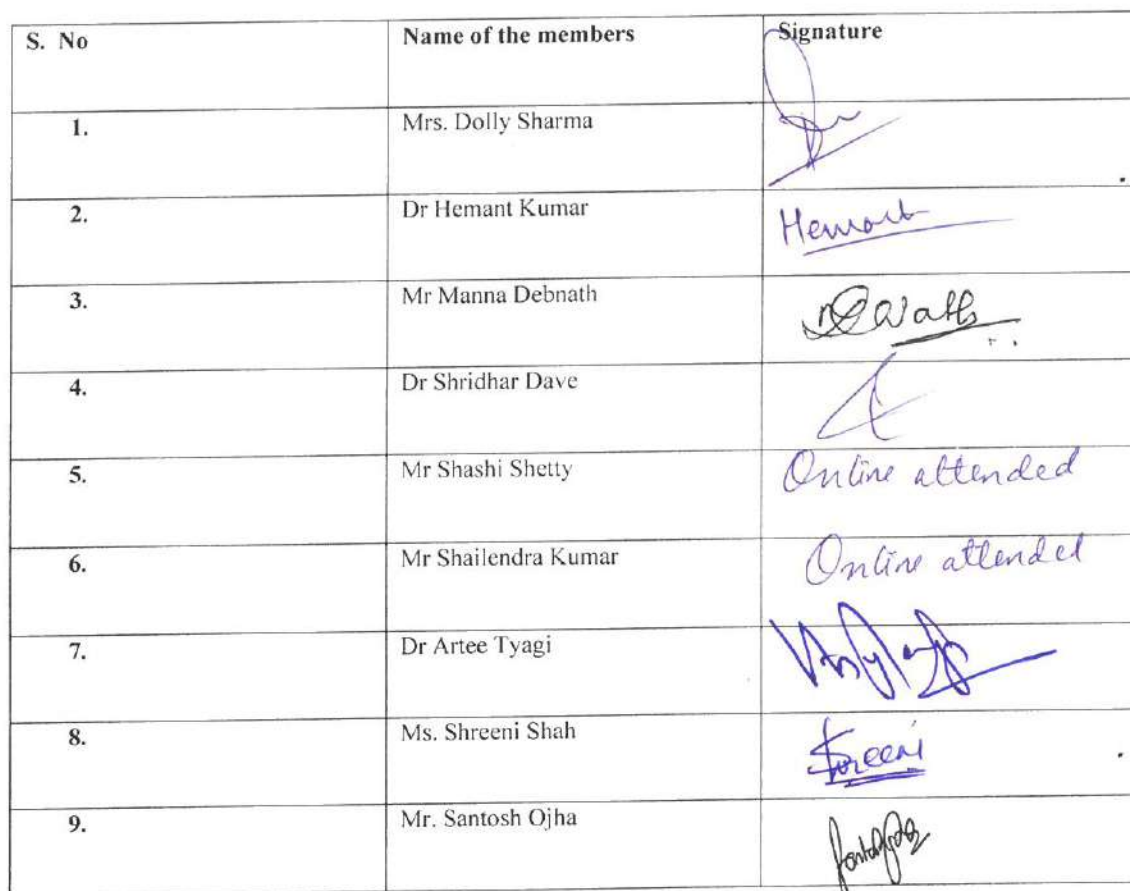 S. No Name of the members Signature
1. Mrs. Dolly Sharma
2. Dr Hemant Kumar Hemant
3. Mr Manna Debnath
4. Dr Shridhar Dave
5. Mr Shashi Shetty Online attended
6. Mr Shailendra Kumar Online attended
7. Dr Artee Tyagi
8. Ms. Shreeni Shah Shreeni
9. Mr. Santosh Ojha